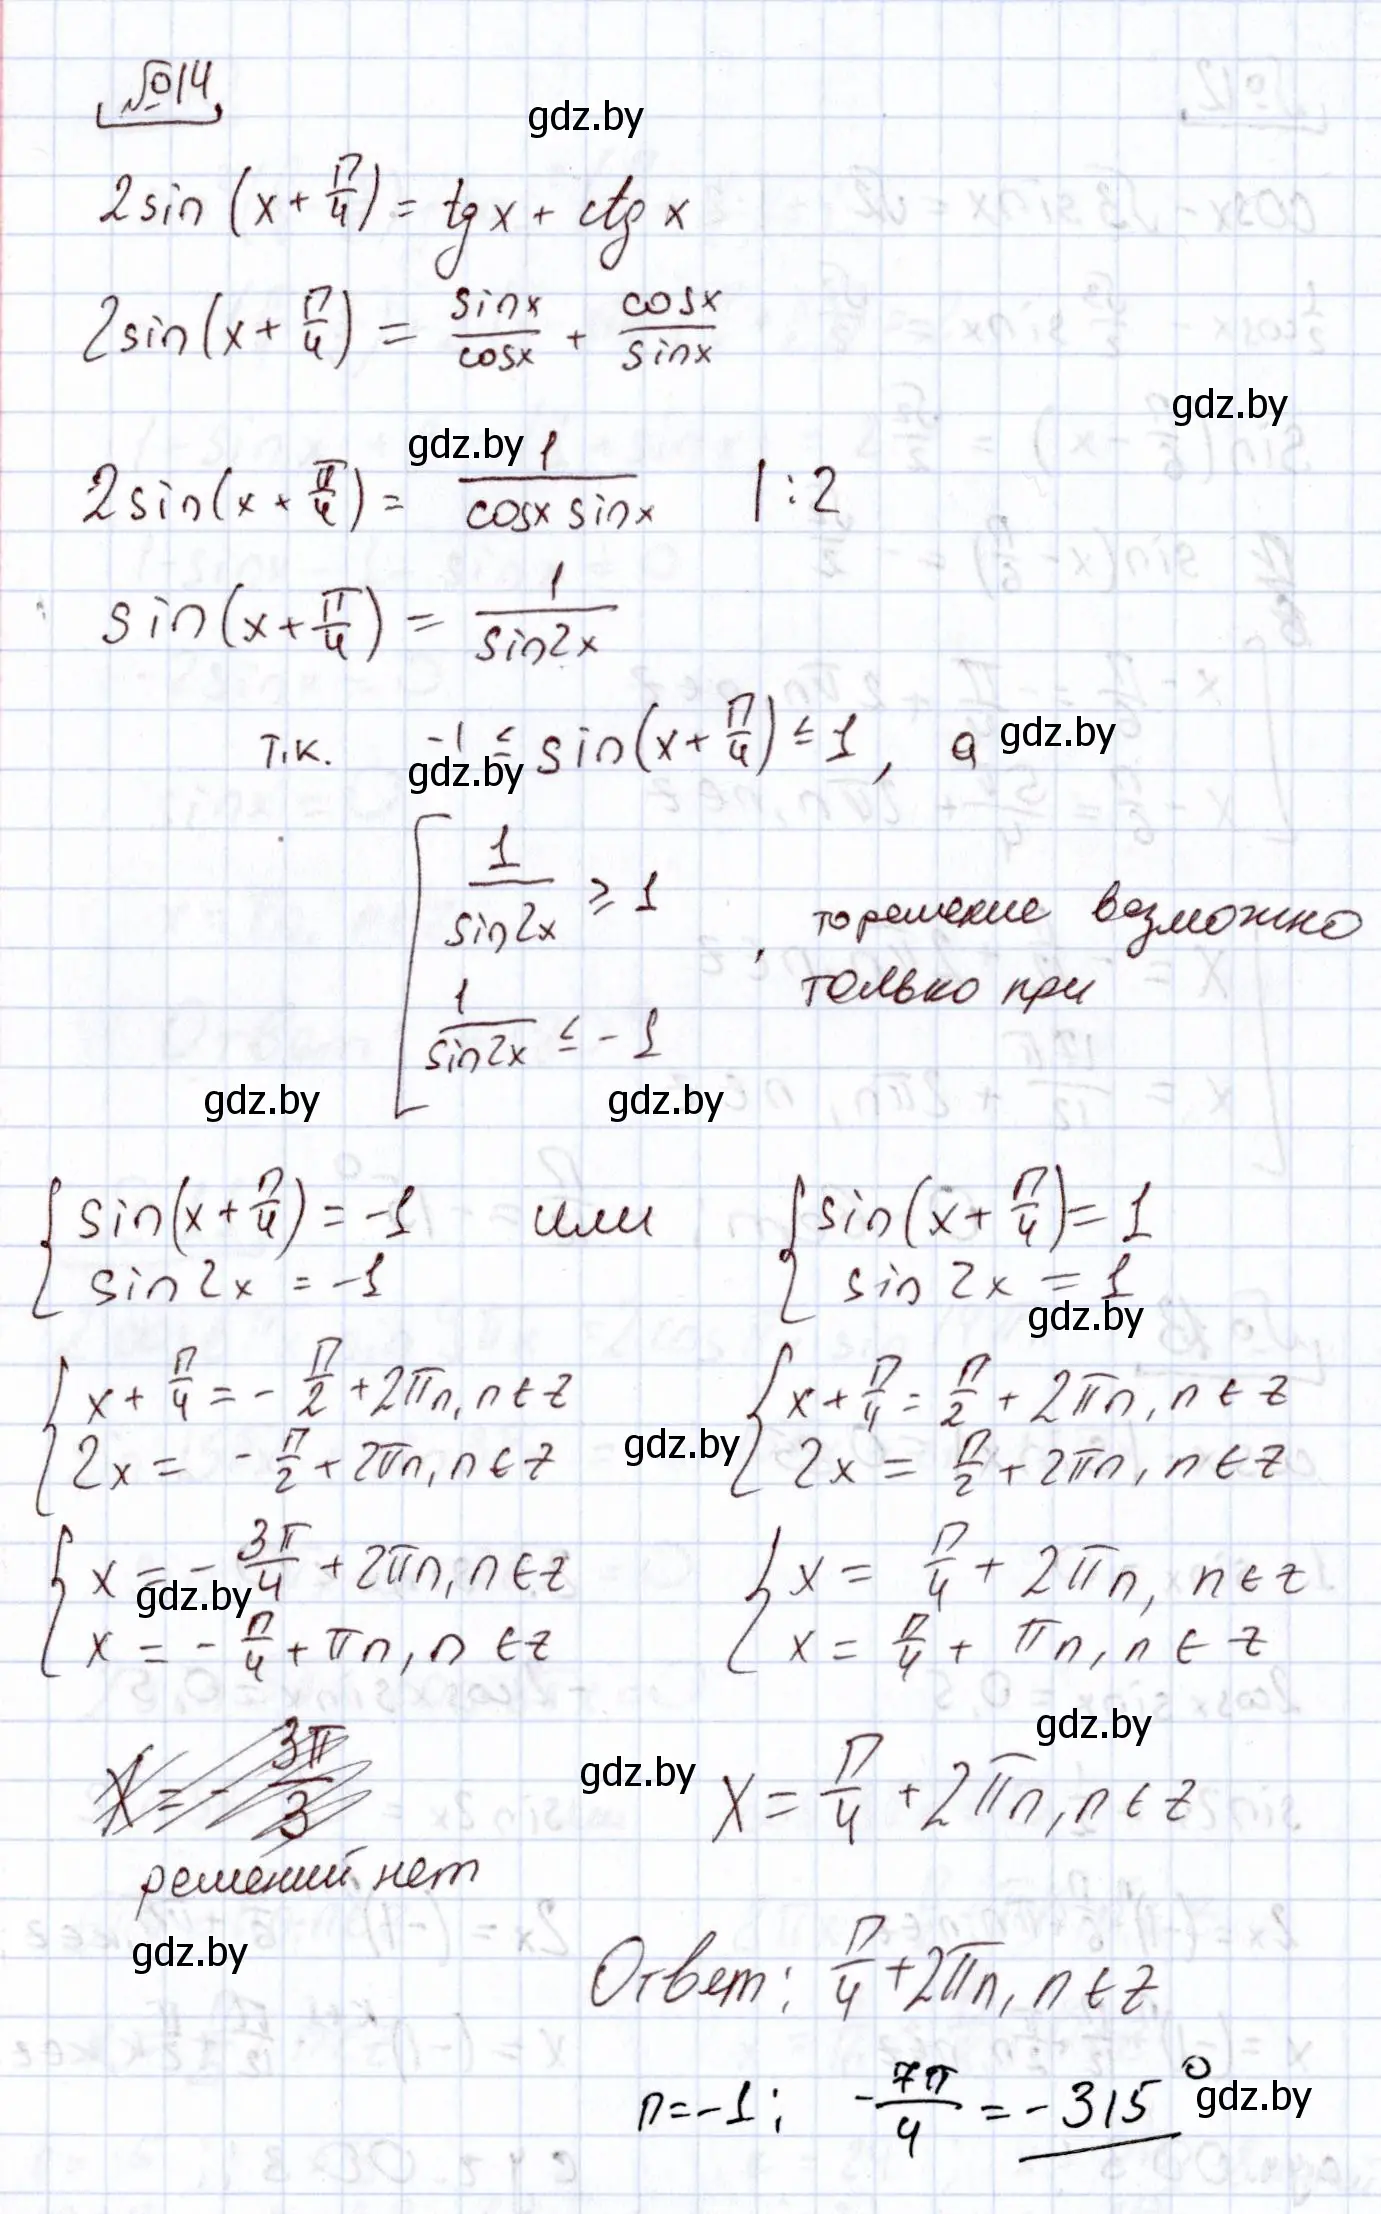 №14
gdz.by
2sin(x+π/4)=tgx+ctgx
2sin(x+π/4)=sinx/cosx+cosx/sinx
gdz.by
gdz.by
2sin(x+π/4)=1/(cosx sinx) |:2
sin(x+π/4)=1/sin2x
т.к. -1≤sin(x+π/4)≤1, а
gdz.by
gdz.by
[ 1/sin2x ≥ 1
, то решение возможно
только при
1/sin2x ≤ -1
gdz.by gdz.by
{ sin(x+π/4)=-1 или { sin(x+π/4)=1
sin2x=-1 sin2x=1
gdz.by
{ x+π/4=-π/2+2πn, n∈z { x+π/4=π/2+2πn, n∈z
gdz.by
2x=-π/2+2πn, n∈z 2x=π/2+2πn, n∈z
{ x=-3π/4+2πn, n∈z { x=π/4+2πn, n∈z
gdz.by
x=-π/4+πn, n∈z x=π/4+πn, n∈z
gdz.by
x=-3π/3 gdz.by x=π/4+2πn, n∈z
решений нет
gdz.by
Ответ: π/4+2πn, n∈z
n=-1; -7π/4=-315° gdz.by